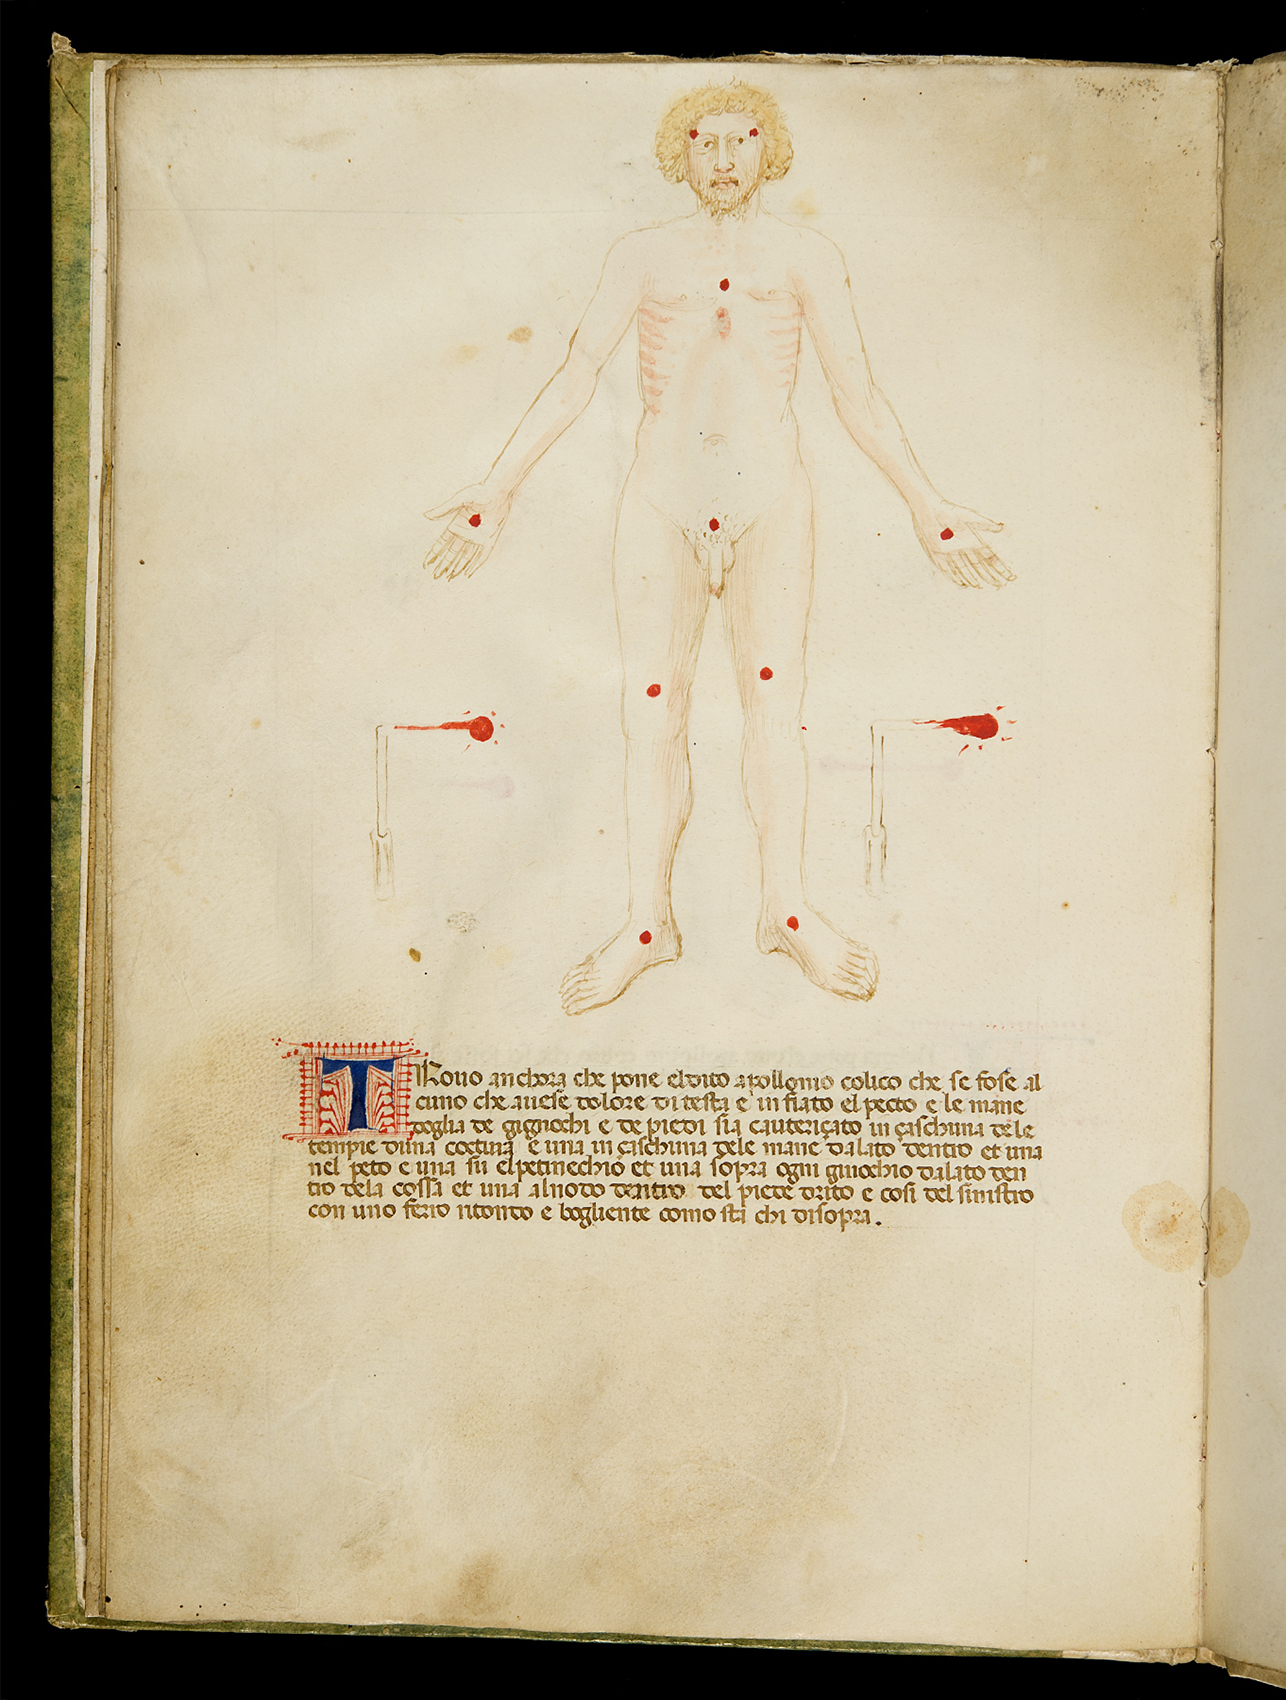 TRouo anchora che pone el dito apollonio colico che se fose al
cuno che auese dolore di testa e infiato el pecto e le mane
doglia de gignochi e de piedi sia cauteriçato in çaschuna dele
tempie duna coctura e una in çaschuna dele mane dalato dentro et una
nel peto e una su el petinechio et una sopra ogni gniochio dalato den
tro dela cossa et una al nodo dentro del piede drito e cosi del sinistro
con uno ferro ritondo e bogliente como sta chi disopra.